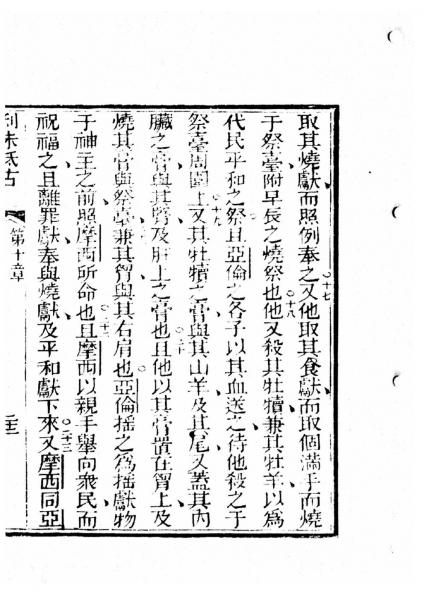 取其燒獻而照例奉之又他取其食獻而取個滿手而燒
十七
于祭臺附早辰之燒祭也他又殺其牡犢兼其牡羊以為
十八
代民平和之祭且亞倫之各子以其血送之待他殺之于
祭臺周圍上又其牡犢之膏與其山羊及其尾又蓋其內
十九
臟之膏與其腎及肝上之膏也且他以其膏置在胷上及
二十
燒其膏與祭臺兼其胷與其右肩也亞倫搖之為搖獻物
二十一
于神主之前照摩西所命也且摩西以親手舉向眾民而
祝福之且離罪獻奉與燒獻及平和獻下來又摩西同亞
二十三
利未氏古
第十章